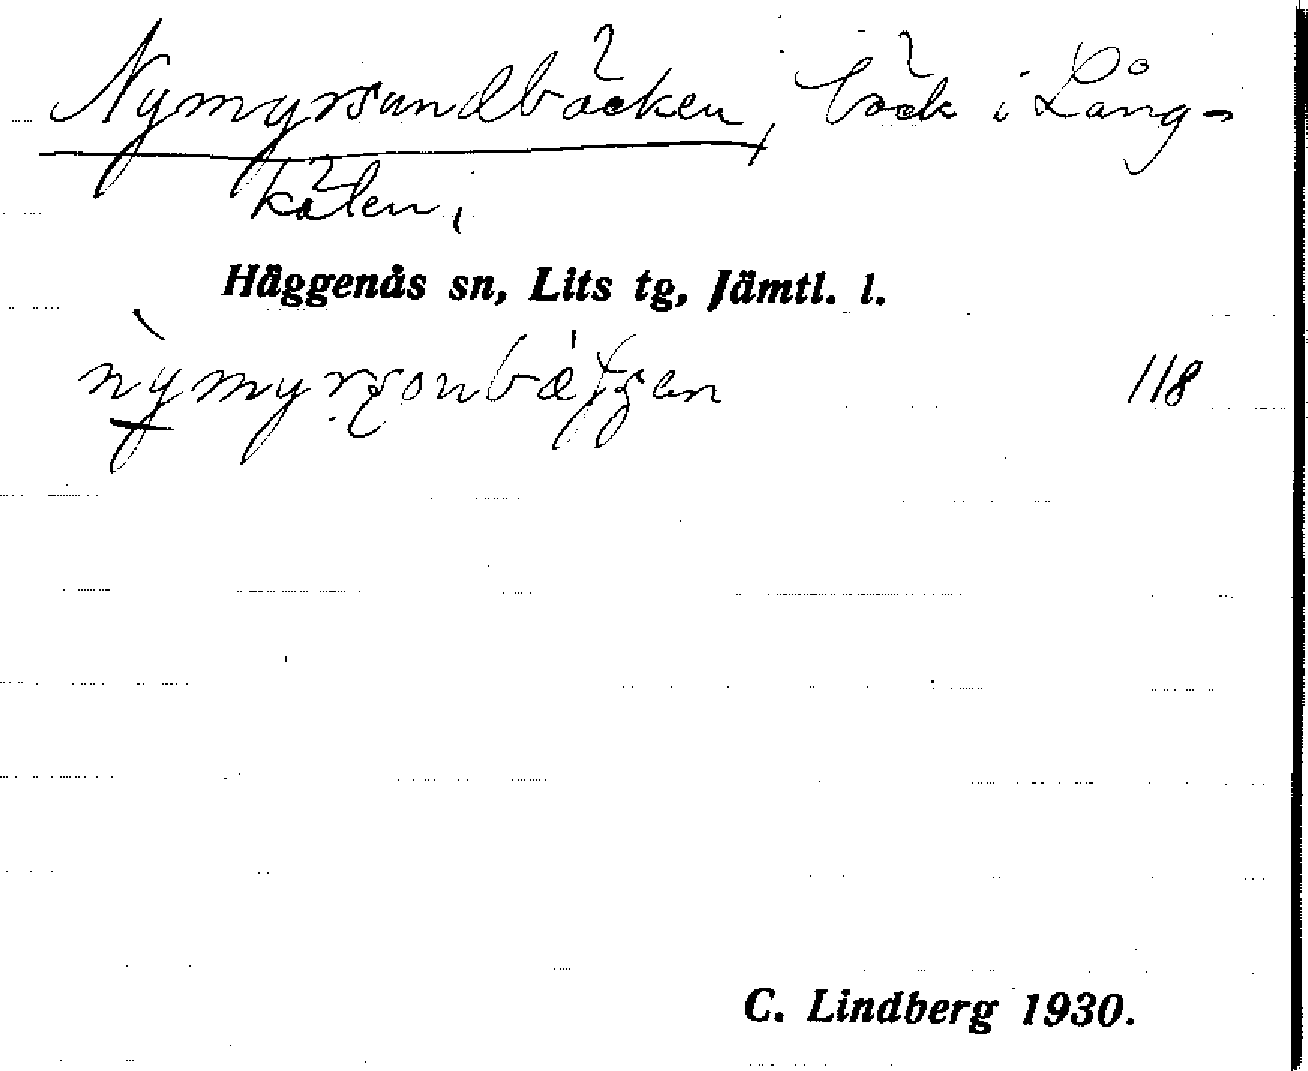 Nymyrsundbäcken, bäck i Lång-
kälen,
Häggenås sn, Lits tg, Jämtl. l.
118
C. Lindberg 1930.